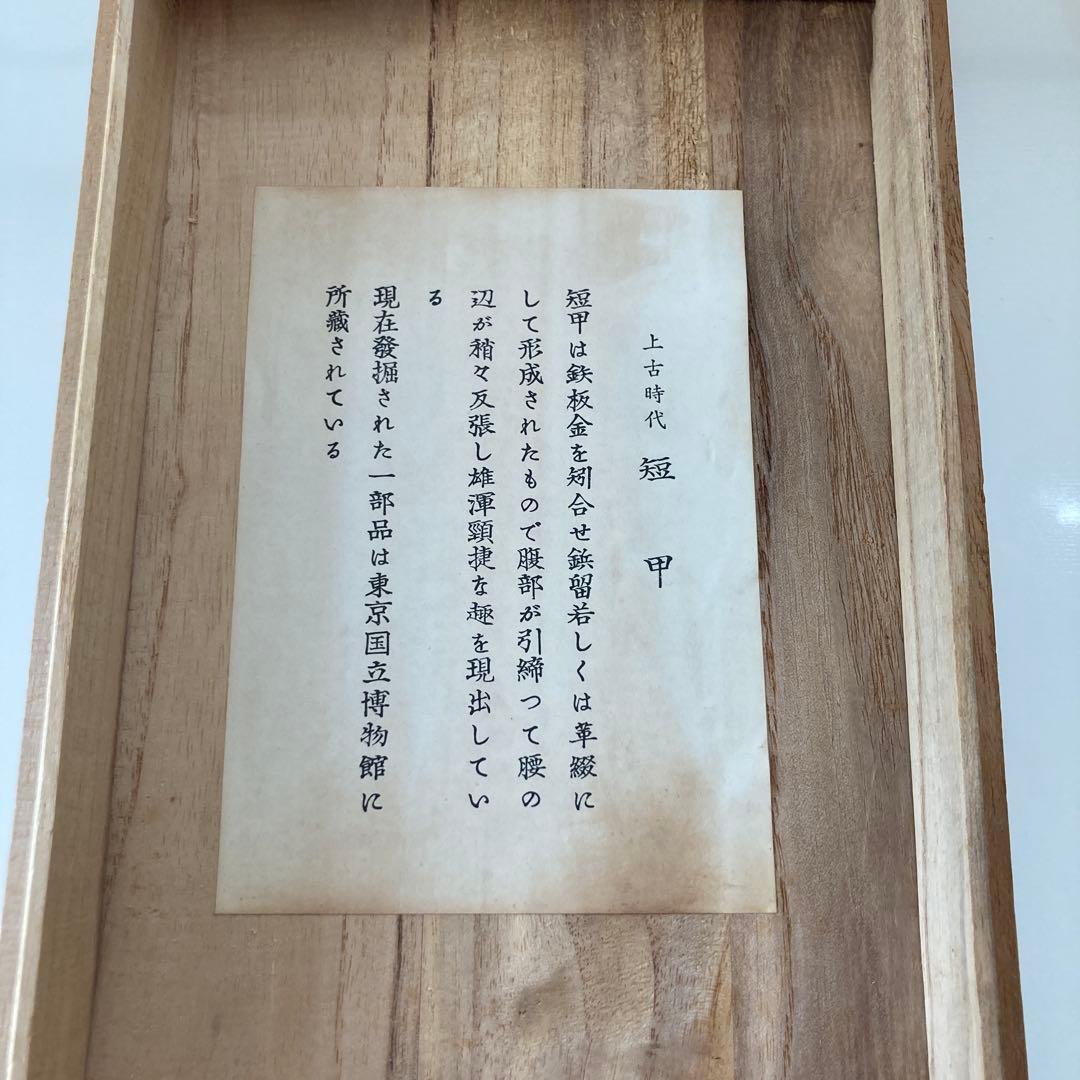 上古時代 短甲
短甲は鉄板金を矧合せ鋲留若しくは革綴に
して形成されたもので腹部が引締つて腰の
辺が稍々反張し雄渾頸捷な趣を現出してい
る
現在發掘された一部品は東京国立博物館に
所蔵されている